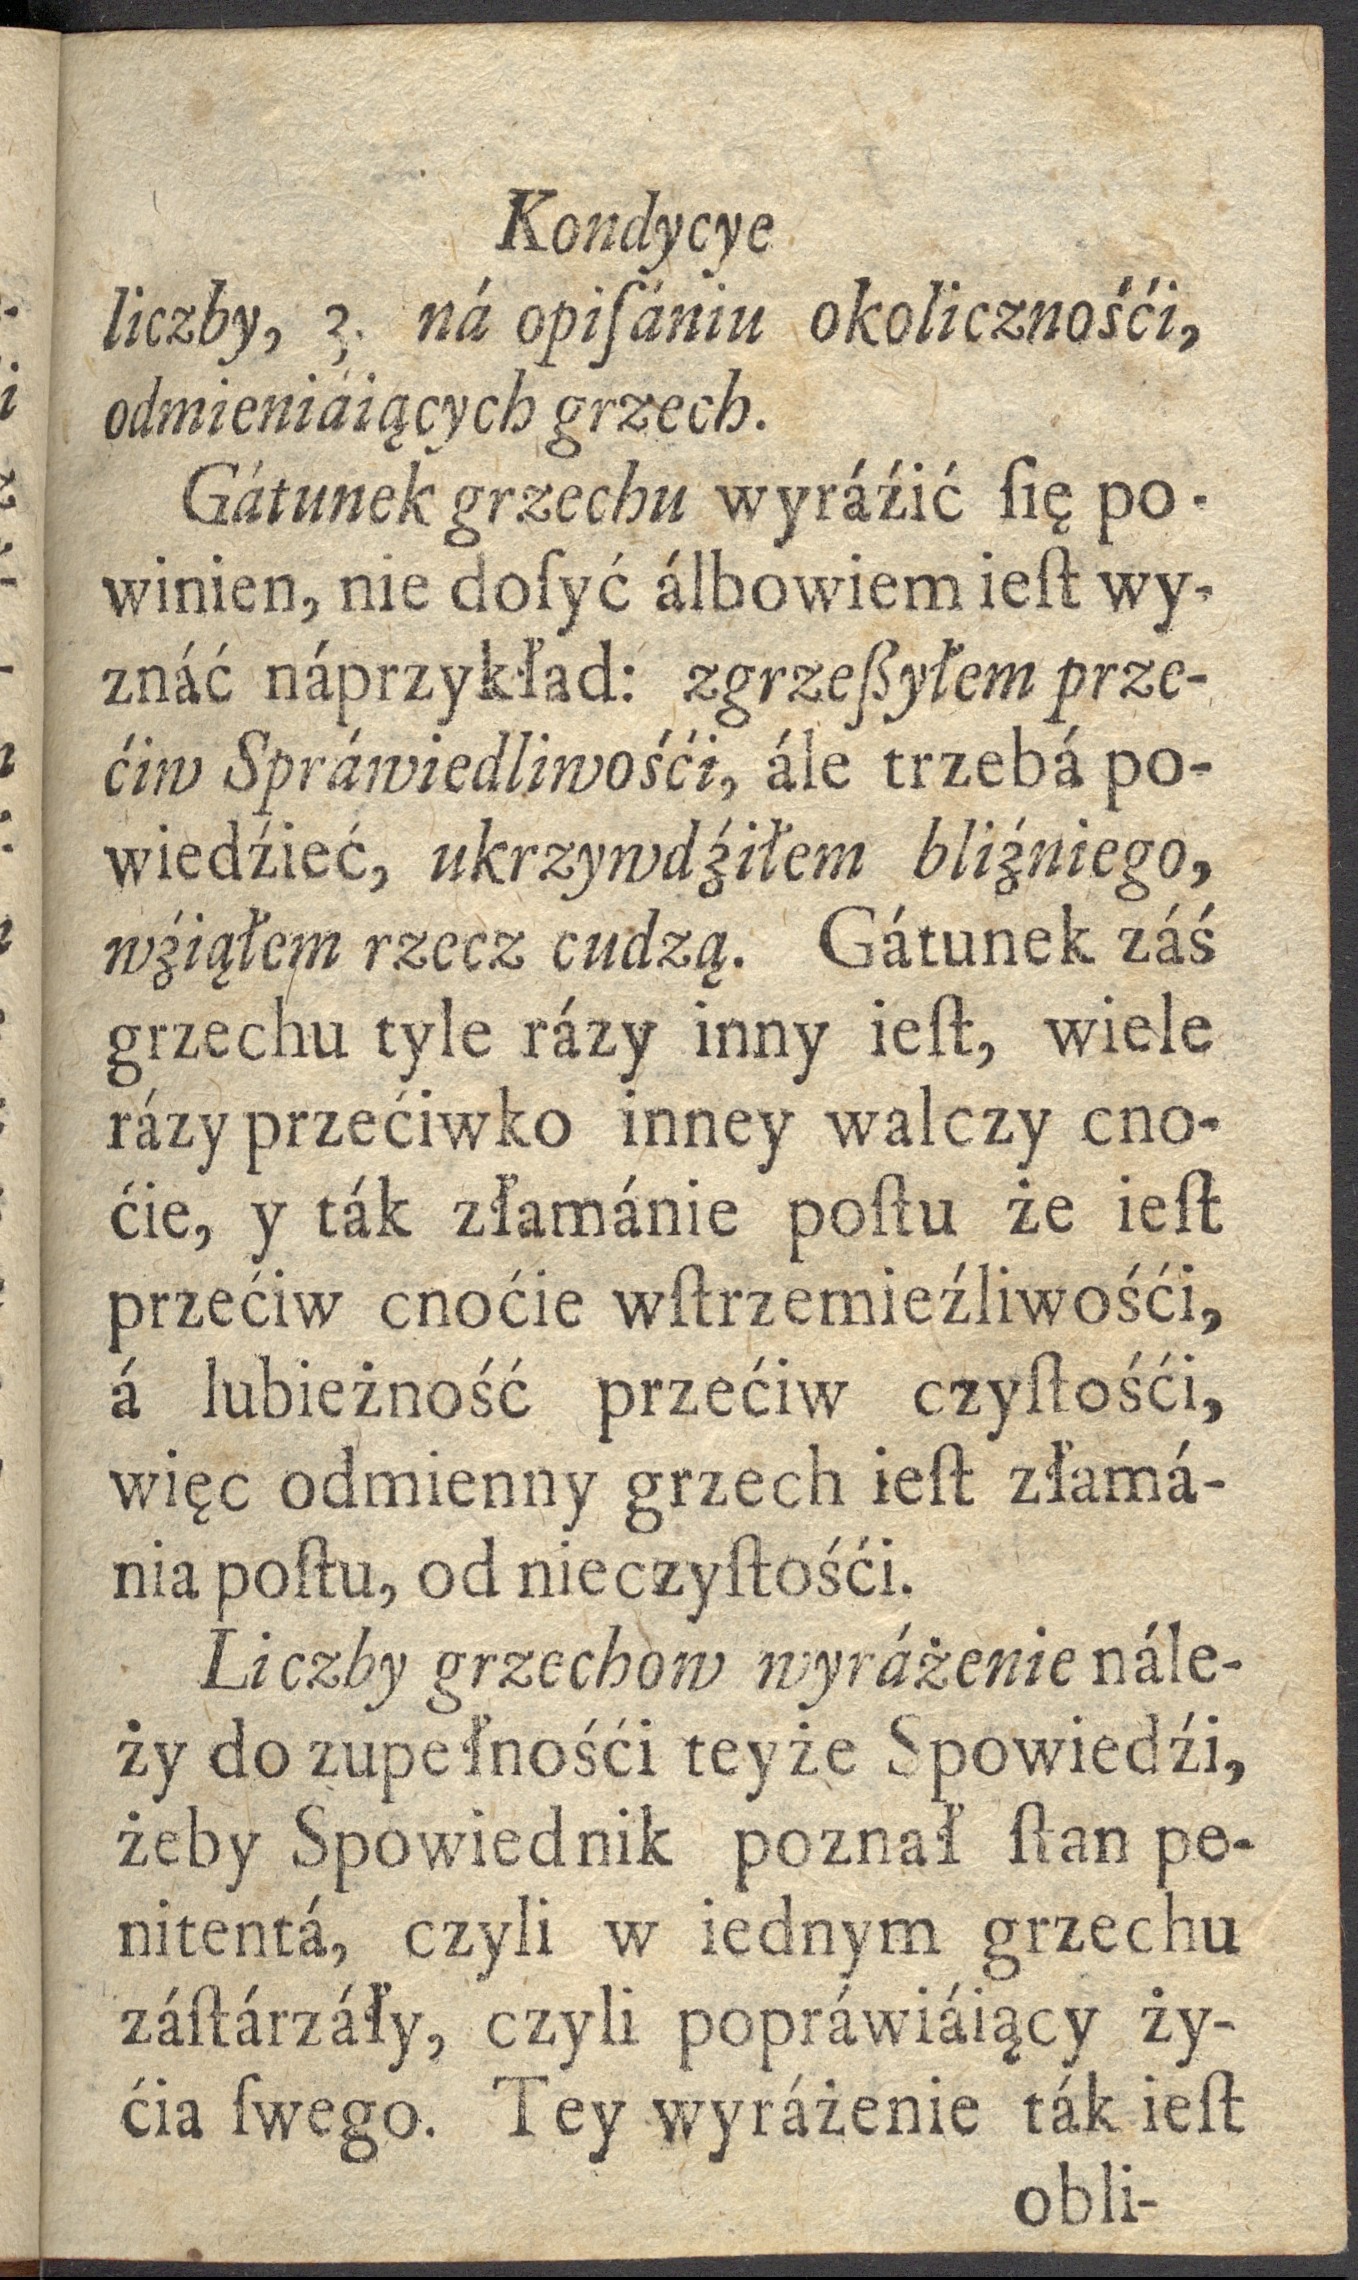 Kondycye
liczby, 3. ná opiſániu okolicznośći,
odmieniáiących grzech.
Gátunek grzechu wyráźić ſię po-
winien, nie doſyć álbowiem ieſt wy-
znáć náprzykład: zgrzeßyłem prze-
ćiw Spráwiedliwośći, ále trzebá po-
wiedźieć, ukrzywdźiłem bliźniego,
wźiąłem rzecz cudzą. Gátunek záś
grzechu tyle rázy inny ieſt, wiele
rázy przećiwko inney walczy cno-
ćie, y ták złamánie poſtu że ieſt
przećiw cnoćie wſtrzemieźliwośći,
á lubieżność przećiw czyſtośći,
więc odmienny grzech ieſt złamá-
nia poſtu, od nieczyſtośći.
Liczby grzechow wyráżenie nále-
ży do zupełnośći teyże Spowiedźi,
żeby Spowiednik poznał ſtan pe-
nitentá, czyli w iednym grzechu
záſtárzáły, czyli popráwiáiący ży-
ćia ſwego. Tey wyráżenie ták ieſt
obli-